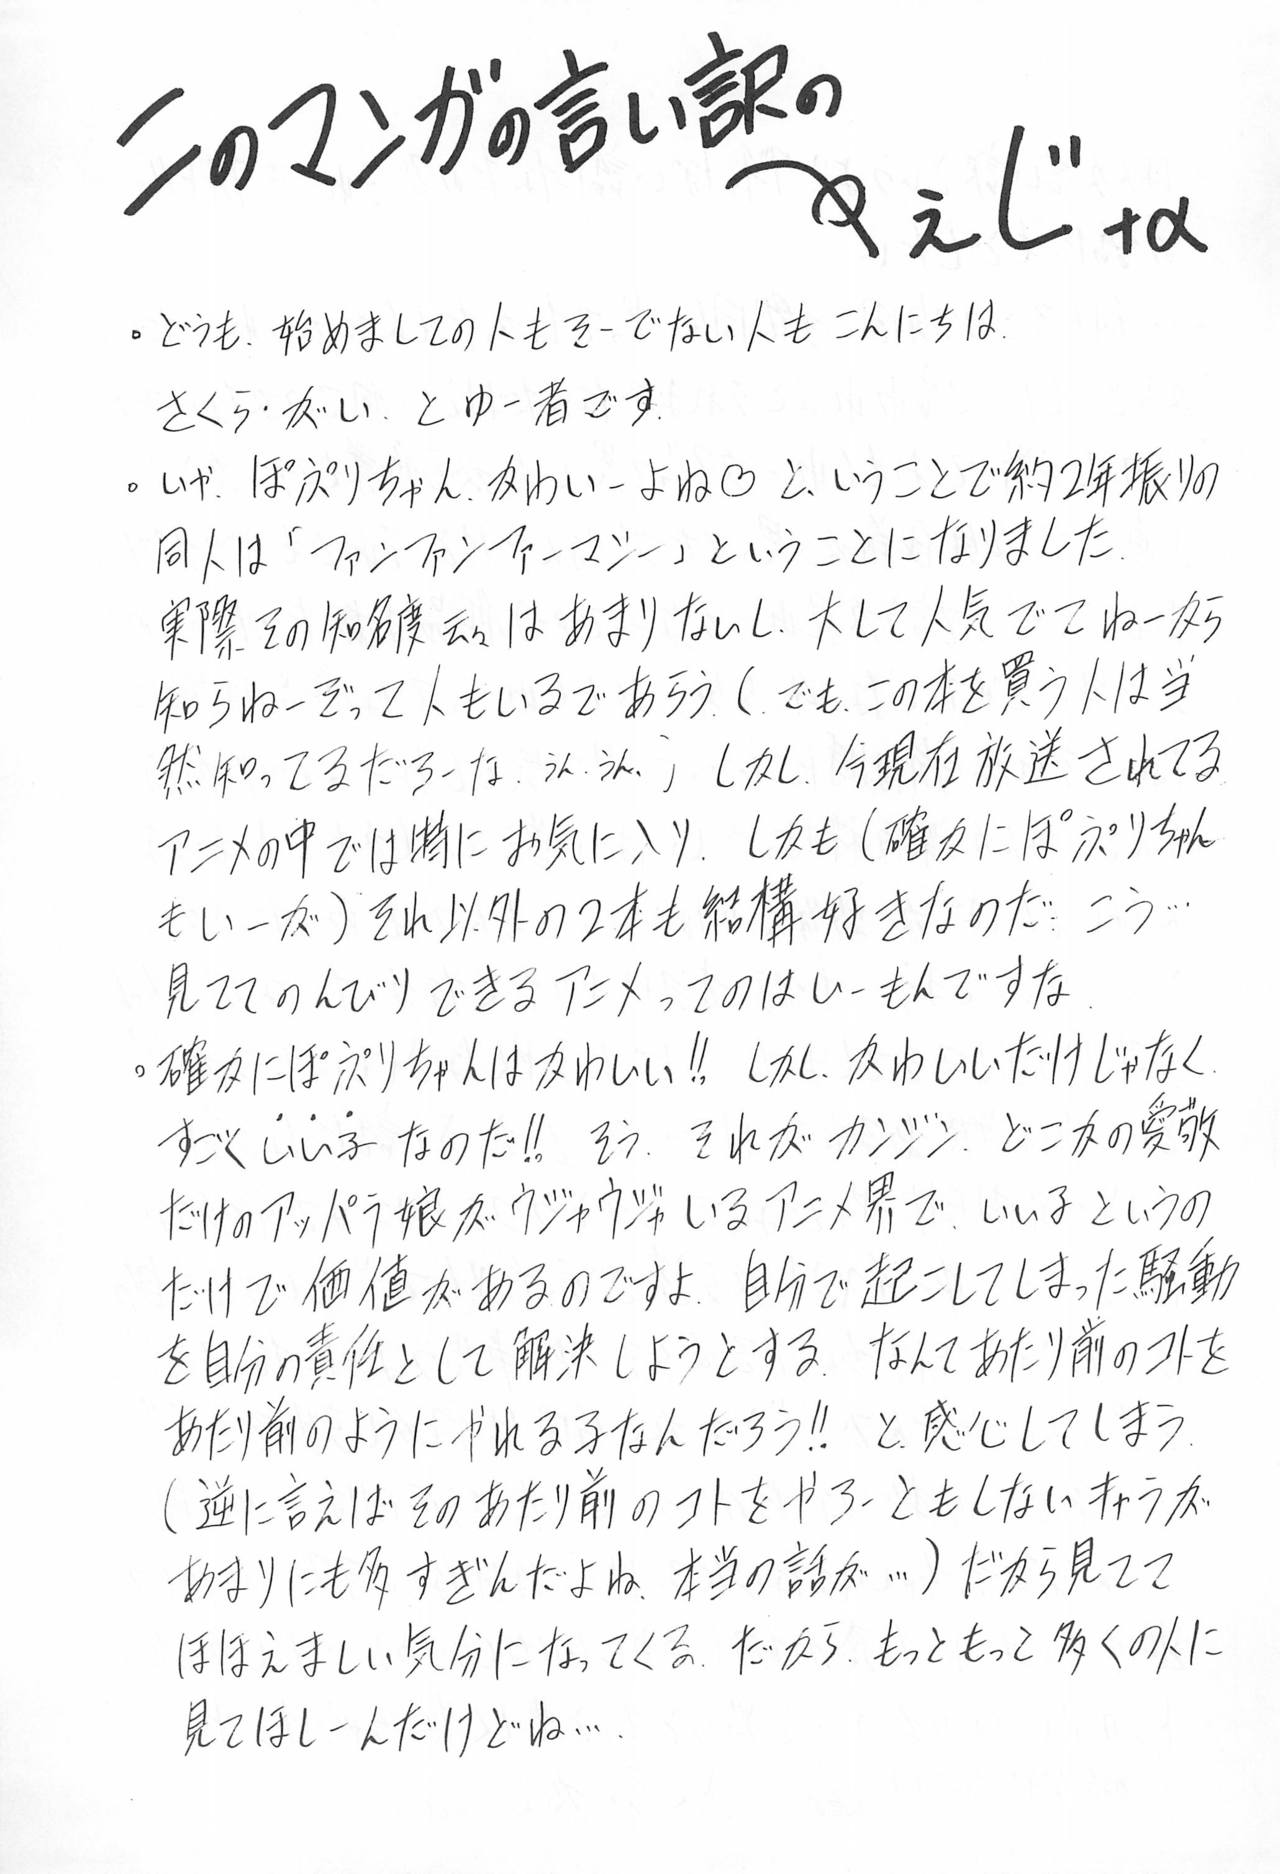 このマンガの言い訳の
ぺえじ +α
。どうも、始めましての人もそーでない人もこんにちは、
さくら・がい、とゆー者です。
。いや、ぽぷりちゃん、かわいーよね♡と、いうことで約2年振りの
同人は「ファンファンファーマシー」ということになりました。
実際その知名度云々はあまりないし、大して人気でてねーから
知らねーぞって人もいるであらう、(でも、この本を買う人は当
然知ってるだろーな、うん、うん、)しかし、今現在放送されてる
アニメの中では特にお気に入り、しかも(確かにぽぷりちゃん
もいーが)それ以外の2本も結構好きなのだ、こう…
見ててのんびりできるアニメってのはいーもんですな。
。確かにぽぷりちゃんはかわいい!!しかし、かわいいだけじゃなく、
すごくいい子なのだ!!そう、それがカンジン、どこかの愛敬
だけのアッパラ娘がウジャウジャいるアニメ界で、いい子というの
だけで価値があるのですよ、自分で起こしてしまった騒動
を自分の責任として解決しようとする、なんてあたり前のコトを
あたり前のようにやれる子なんだろう!!と、感心してしまう、
(逆に言えばそのあたり前のコトをやろーともしないキャラが
あまりにも多すぎんだよね、本当の話が…)だから見てて
ほほえましい気分になってくる、だから、もっともっと多くの人に
見てほしーんだけどね…。